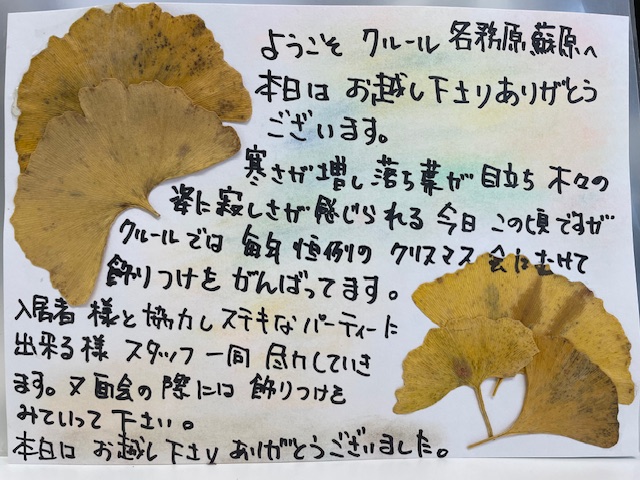 ようこそ クルール 各務原蘇原へ
本日は お越し下さりありがとう
ございます。
寒さが増し落ち葉が目立ち 木々の
姿に寂しさが感じられる今日この頃ですが
クルールでは 毎年恒例の クリスマス会にむけて
飾りつけを がんばってます。
入居者様と協力しステキなパーティーに
出来る様 スタッフ一同 尽力していき
ます。又面会の際には飾りつけを
みていって下さい。
本日は お越し下さり ありがとうございました。